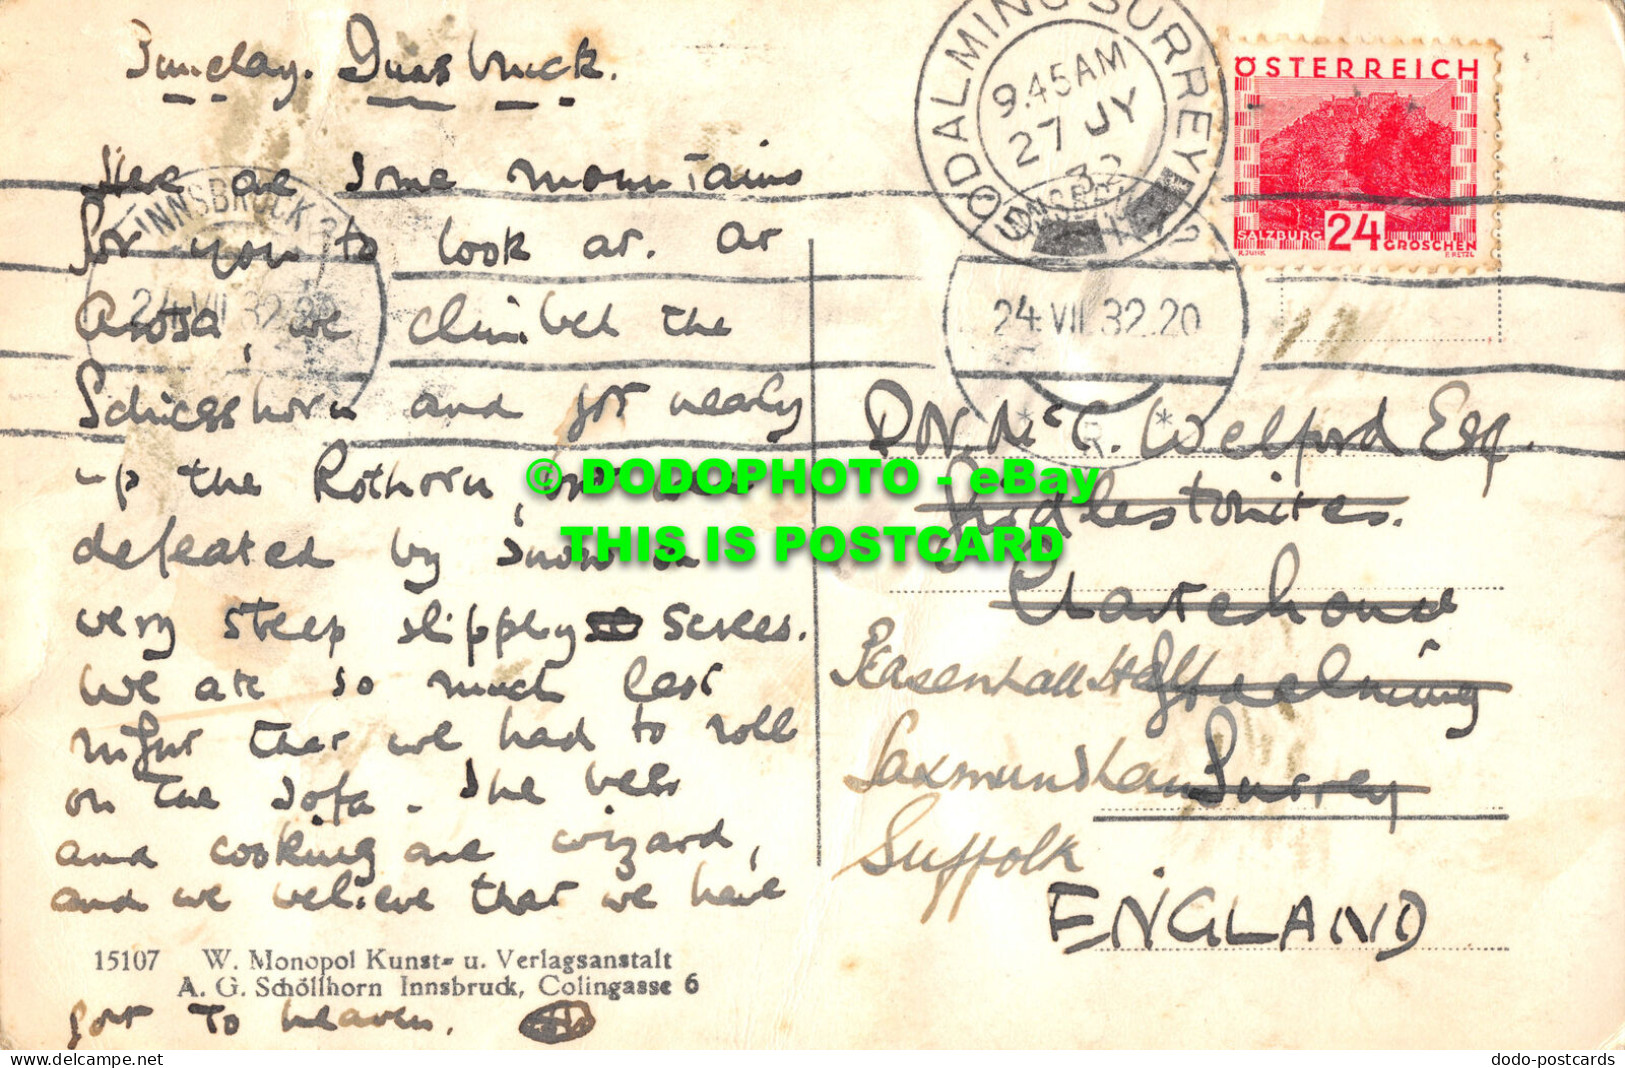 Sunday. Innsbruck.
Here are some mountains
for you to look at. At
Arosa, we climbed the
Schiesshorn and got nearly
up the Rothorn, but
defeated by snow on
very steep slippery screes.
We ate so much last
night that we had to roll
on the sofa. The beer
and cooking are wizard,
and we believe that we have
15107 W. Monopol Kunst- u. Verlagsanstalt
A. G. Schöllhorn Innsbruck, Colingasse 6
got to heaven.
INNSBRUCK 2
24.VII.32.20
GODALMING SURREY
9.45AM
27 JY
32
INNSBRUCK
24.VII.32.20
* R *
ÖSTERREICH
SALZBURG 24 GROSCHEN
R.JUNK
D.N. McC. Welford Esq.
Girdlestoneites.
Charterhouse
Peasenhall Hall
Godalming
Saxmundham
Surrey
Suffolk
ENGLAND
© DODOPHOTO - eBay
THIS IS POSTCARD
www.delcampe.net
dodo-postcards